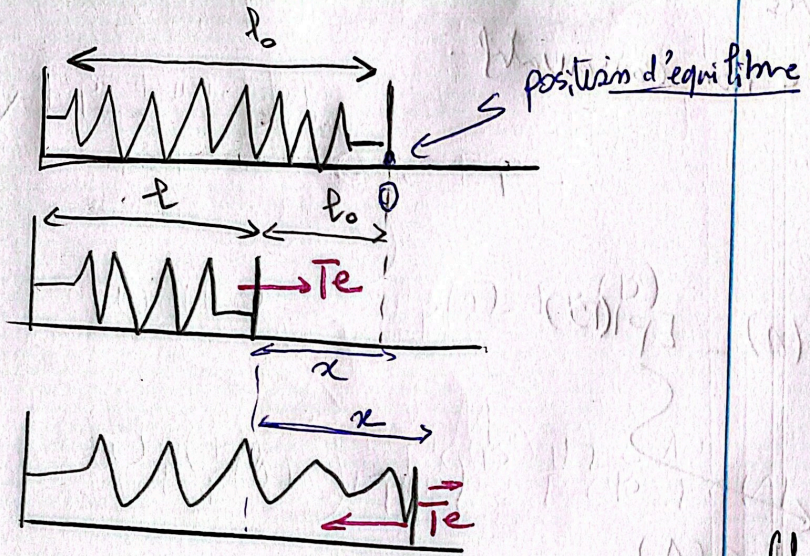 l₀
position d'équilibre
O
l l₀
Te
x
x
Te